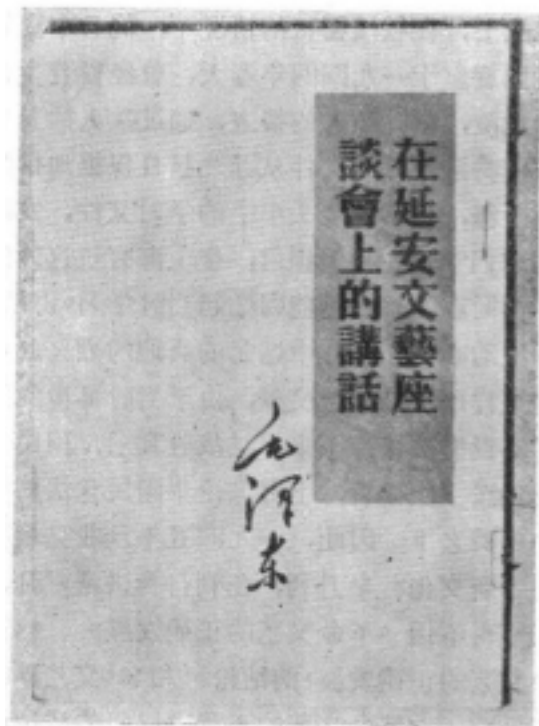 在延安文藝座
談會上的講話
毛澤东